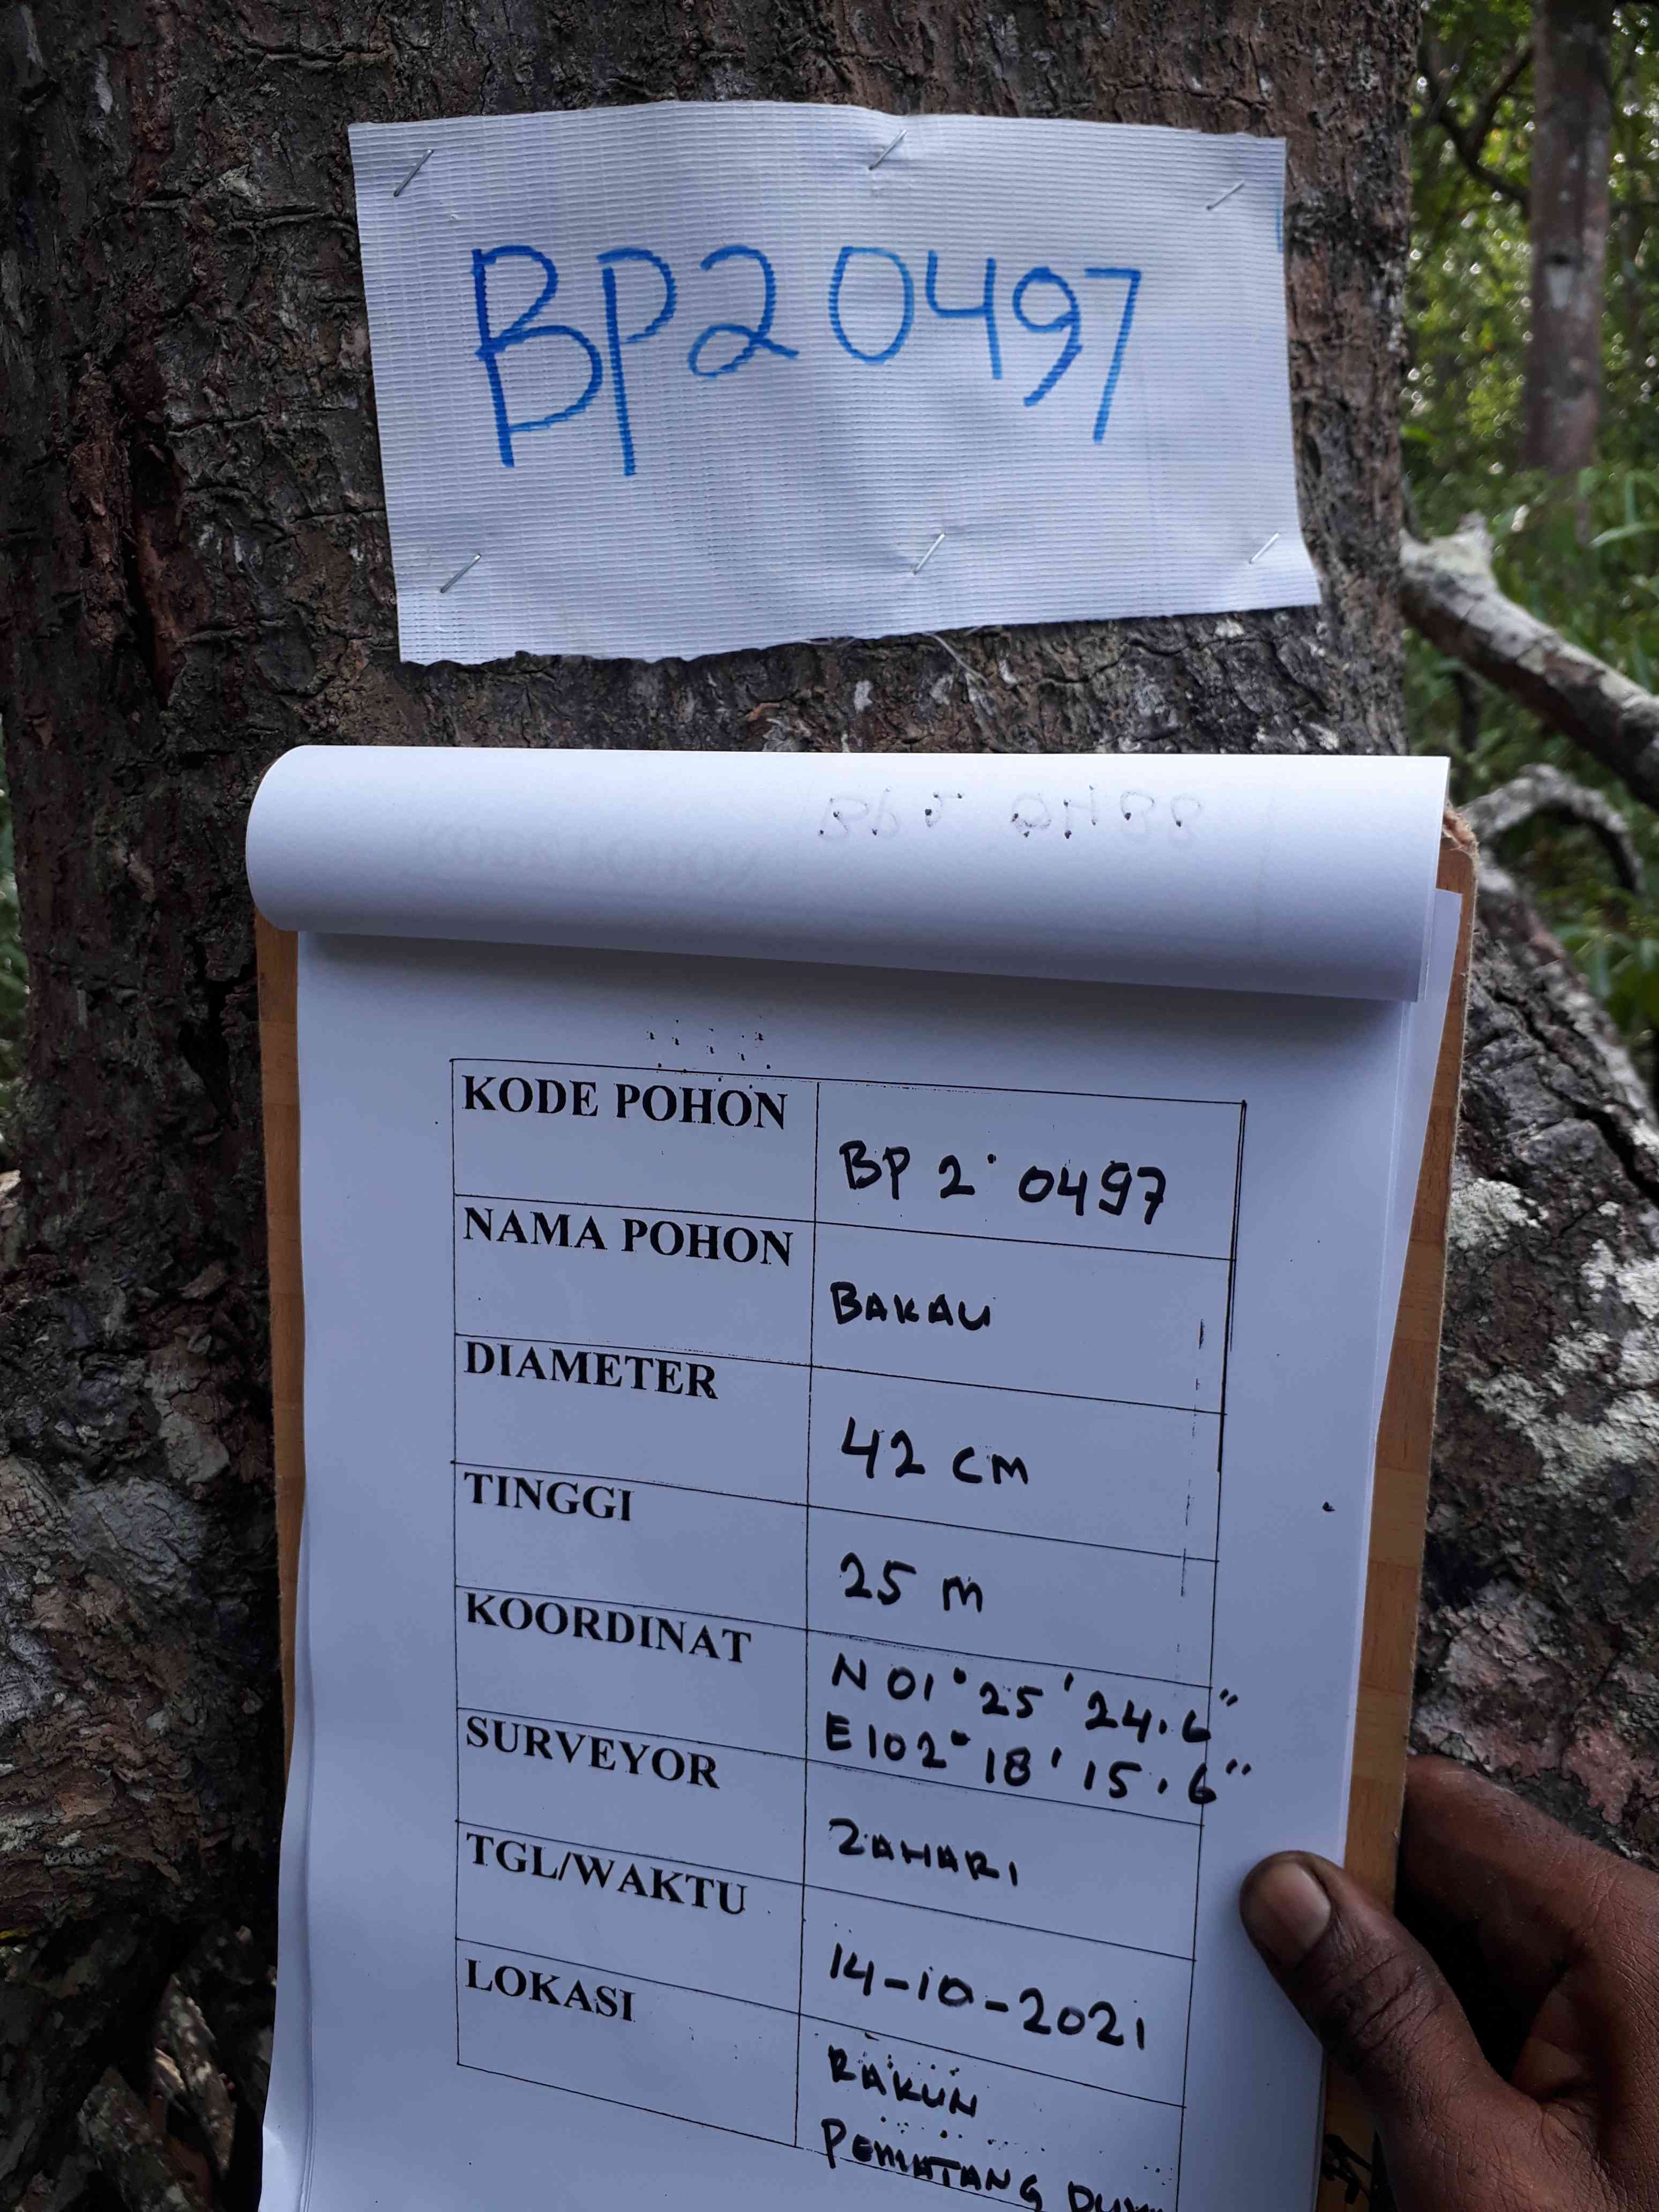 BP2 0497
KODE POHON
BP 2 0497
NAMA POHON
BAKAU
DIAMETER
42 CM
TINGGI
25 M
KOORDINAT
N 01° 25' 24.6"
E 102° 18' 15.6"
SURVEYOR
ZAHARI
TGL/WAKTU
14-10-2021
LOKASI
RAKUN
PEMATANG